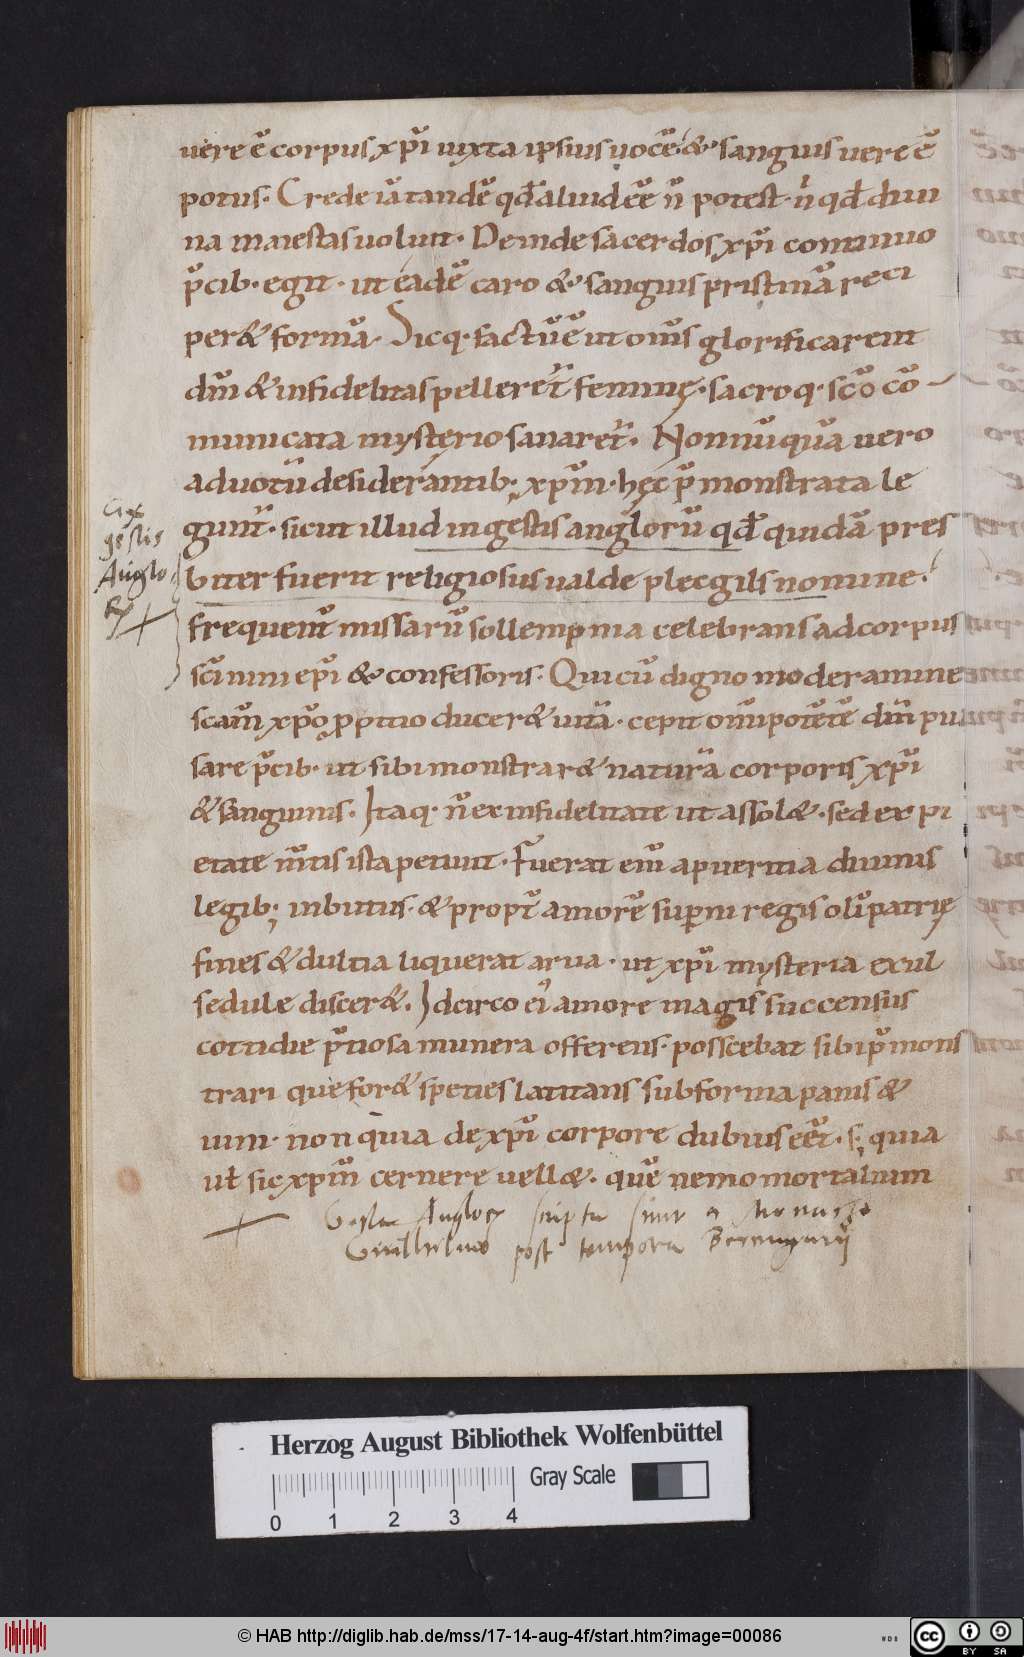 uere ē corpus xp̄i iuxta ipsius uocē· & sanguis uere ē
potus· Crede iā tandē qđ aliud eē n̄ potest· n̓ qđ diui
na maiestas uoluit· Deinde sacerdos xp̄i continuo
p̄cib· egit· ut eadē caro & sanguis pristinā reci
per& formā· Sicq· factū ē ut om̄s glorificarent
dm̄ & infidelitas pelleret̄ feminę· sacroq· sc̄o cō
municata mysterio sanaret̄· Nonnūquā uero
aduotū desiderantib; xp̄m· hęc p̄monstrata le
gunt̄· sicut illud in gestis anglorū qđ quidā pres
biter fuerit religiosus ualde plecgils nomine·
frequent̄ missarū sollempnia celebrans ad corpus
sc̄i nini ep̄i & confessoris· Qui cū digno moderamine
scam̄ xp̄o ꝓpitio ducer& uitā· cepit om̄ipotētē dm̄ pul
sare p̄cib· ut sibi monstrar& naturā corporis xp̄i
& sanguinis· Itaq· n̄ ex infidelitate ut assol&· sed ex pi
etate m̄tis ista petiuit· Fuerat enī a pueritia diuinis
legib; inbutus· & propt̄ amorē sup̄ni regis olī patrię
fines & dulcia liquerat arua· ut xp̄i mysteria exul
sedule discer&. Idcirco ei̓ amore magis succensus
cottidie p̄tiosa munera offerens· posscebat sibi p̄mons
trari que for& speties latitans sub forma panis &
uini· non quia de xp̄i corpore dubius eēt· s; quia
uł sic xp̄m̄ cernere uell&· quē nemo mortalium
Ex
gestis
Anglo-
rꝝ +
+ Gesta Angloꝝ scripta sunt a Monacho
Guilhelmo post tempora Berengarij
Herzog August Bibliothek Wolfenbüttel
Gray Scale
0 1 2 3 4
© HAB http://diglib.hab.de/mss/17-14-aug-4f/start.htm?image=00086
cc BY SA